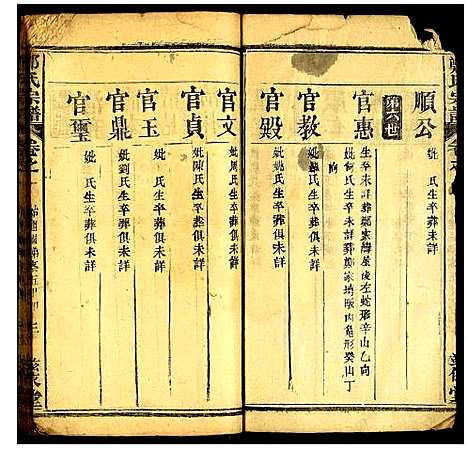 順公
妣 氏生卒葬俱未詳
第六世
官惠
生卒未詳葬鄭家灣屋後左蛇形辛山乙向
妣何氏生卒未詳葬鄭家垴畈內龜形癸山丁
向
官教
妣姚氏生卒葬俱未詳
官殿
妣 氏生卒葬俱未詳
官文
妣周氏生卒葬俱未詳
官貞
妣陳氏生卒葬俱未詳
官玉
妣 氏生卒葬俱未詳
官鼎
妣劉氏生卒葬俱未詳
官璽
妣 氏生卒葬俱未詳
鄭氏宗譜 卷之一